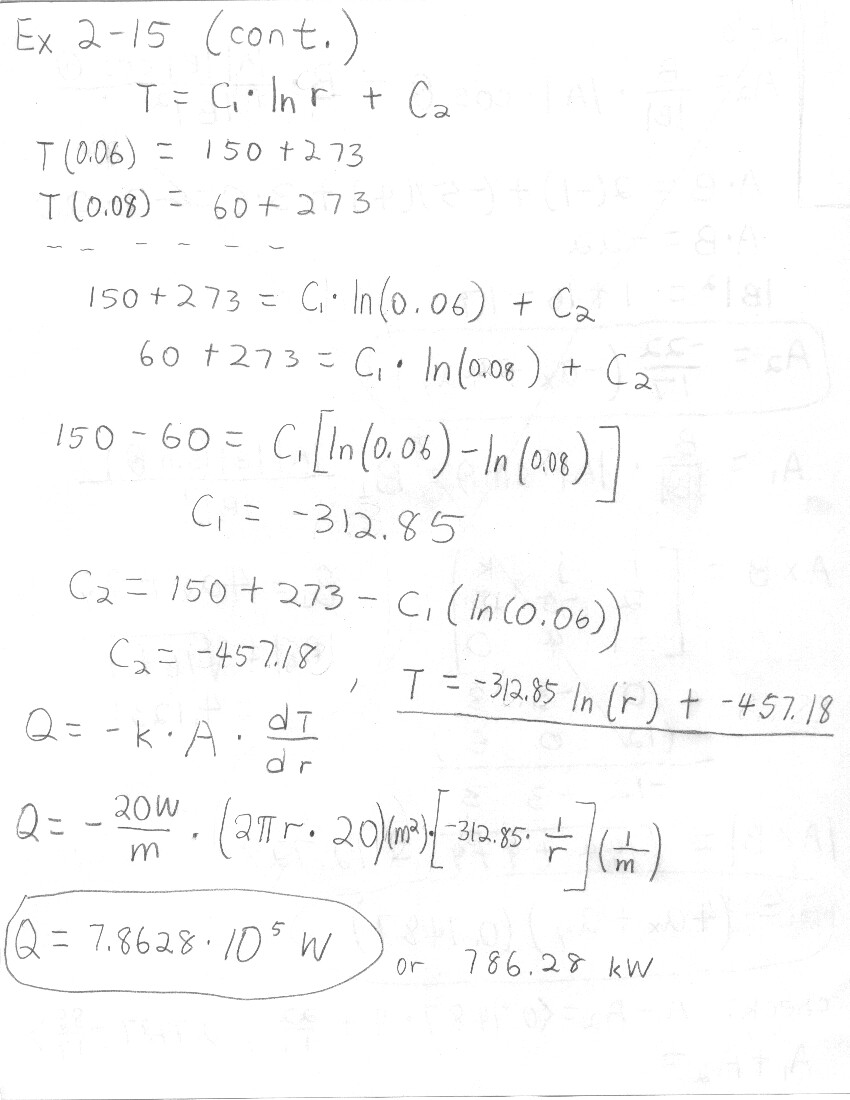 Ex 2-15 (cont.)
T = C₁ · ln r + C₂
T(0.06) = 150 + 273
T(0.08) = 60 + 273
- - - - - -
150 + 273 = C₁ · ln(0.06) + C₂
60 + 273 = C₁ · ln(0.08) + C₂
150 - 60 = C₁ [ln(0.06) - ln(0.08)]
C₁ = -312.85
C₂ = 150 + 273 - C₁ (ln(0.06))
C₂ = -457.18 , T = -312.85 ln(r) + -457.18
Q = -k · A · dT/dr
Q = - 20W/m · (2πr · 20)(m²) · [-312.85 · 1/r] (1/m)
Q = 7.8628 · 10⁵ W or 786.28 kW